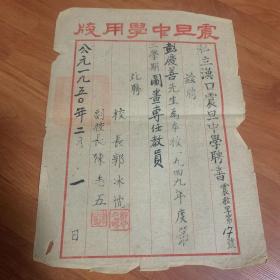 震旦中學用牋
私立漢口震旦中學聘書
震教字第17號
茲聘
彭慶善先生為本校一九四九年度第
二學期圖畫專任教員
此聘
校長郭冰忱
副校長陳志五
公元一九五〇年二月一日